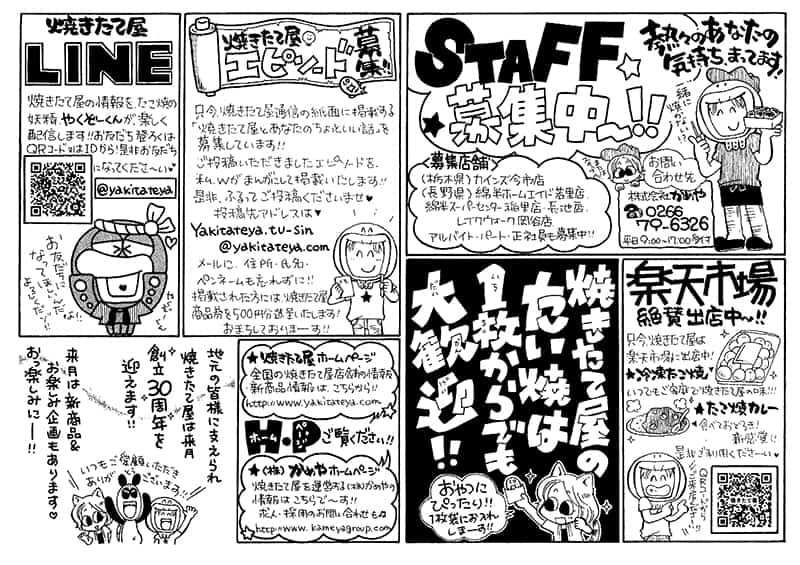 焼きたて屋
LINE
焼きたて屋の情報を、たこ焼の
妖精、やくぞーくんが、楽しく
配信します!!お友だち登ろくは
QRコード又はIDから!是非お友だち
になってくださーい♥
@yakitateya
お友だちに
なってほしいんだな!
よろしくだゾ〜!!
焼きたて屋の
エピソード募集!!
只今、焼きたて屋通信の紙面に掲載する
「焼きたて屋とあなたのちょっといい話」を
募集しています!!
ご投稿いただきましたエピソードを、
私、Wがまんがにして掲載いたします!!
是非、ふるってご投稿くださいませ♥
投稿先アドレスは♥
Yakitateya.tu-sin
@yakitateya.com
メールに、住所・氏名・
ペンネームも忘れずに!!
掲載された方には焼きたて屋
商品券を500円分進呈いたします!
お待ちしておりまーす!!
STAFF
★募集中〜!!
熱々のあなたの
気持ち、まってます!!
一緒に
焼かない!?
<募集店舗>
(栃木県)カインズ今市店
(長野県)綿半ホームエイド若里店、
綿半スーパーセンター稲里店・長池店、
レイクウォーク岡谷店
アルバイト・パート・正社員も募集中!!
お問い
合わせ先
株式会社かめや
☎0266
79-6326
平日9:00〜17:00受付
地元の皆様に支えられ
焼きたて屋は来月
創立30周年を
迎えます!!
来月は新商品&
お楽しみ企画もあります♥
お楽しみにー!!
いつもご愛顧いただき
ありがとうございます!!
★焼きたて屋ホームページ
全国の焼きたて屋店舗の情報
・新商品情報は、こちらから!!
http://www.yakitateya.com
ホームページ
H.P ご覧ください!!
★(株)かめやホームページ
焼きたて屋を運営する(株)かめやの
情報は、こちらで〜す!!
求人・採用のお問い合わせも♫
http://www.kameyagroup.com
焼きたて屋の
たい焼は
1枚からでも
大歓迎!!
おやつに
ぴったり!!
1枚袋にお入れ
しまーす!!
楽天市場
絶賛出店中〜!!
只今、焼きたて屋は
楽天市場に出店中!
★冷凍たこ焼
いつでもご家庭で焼きたて屋の味!!!
★たこ焼カレー
食べておどろき!
新感覚!!
是非ご利用くださーい♥
QRコードから
ご来店ください!!